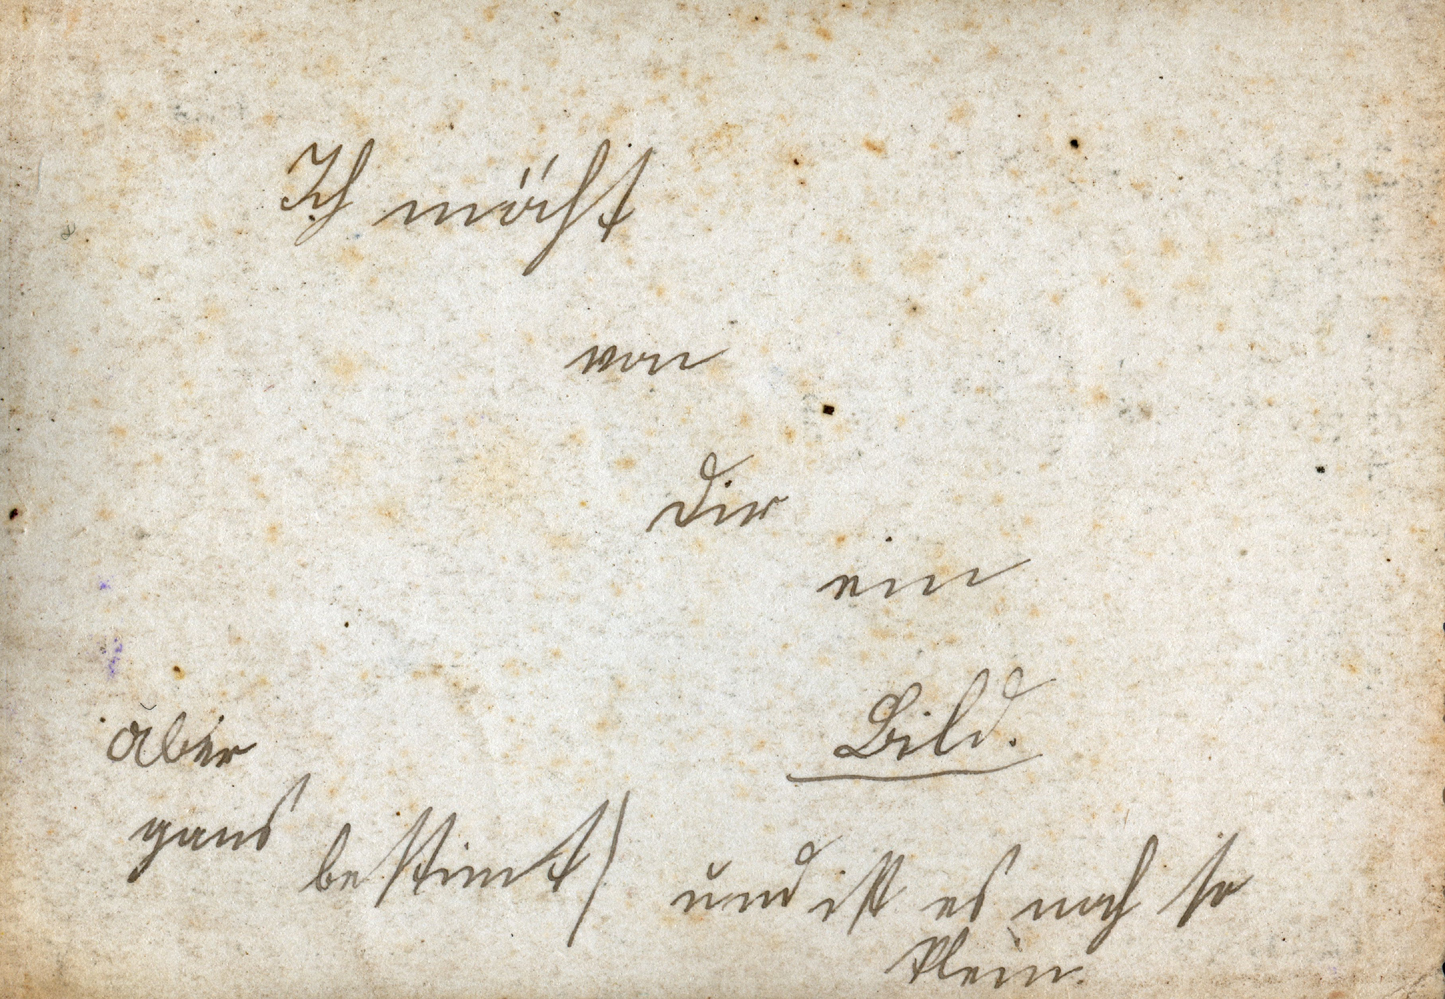 Ich möcht
von
Dir
ein
Bild.
aber
gans
bestimt)
und ist es noch so
klein.